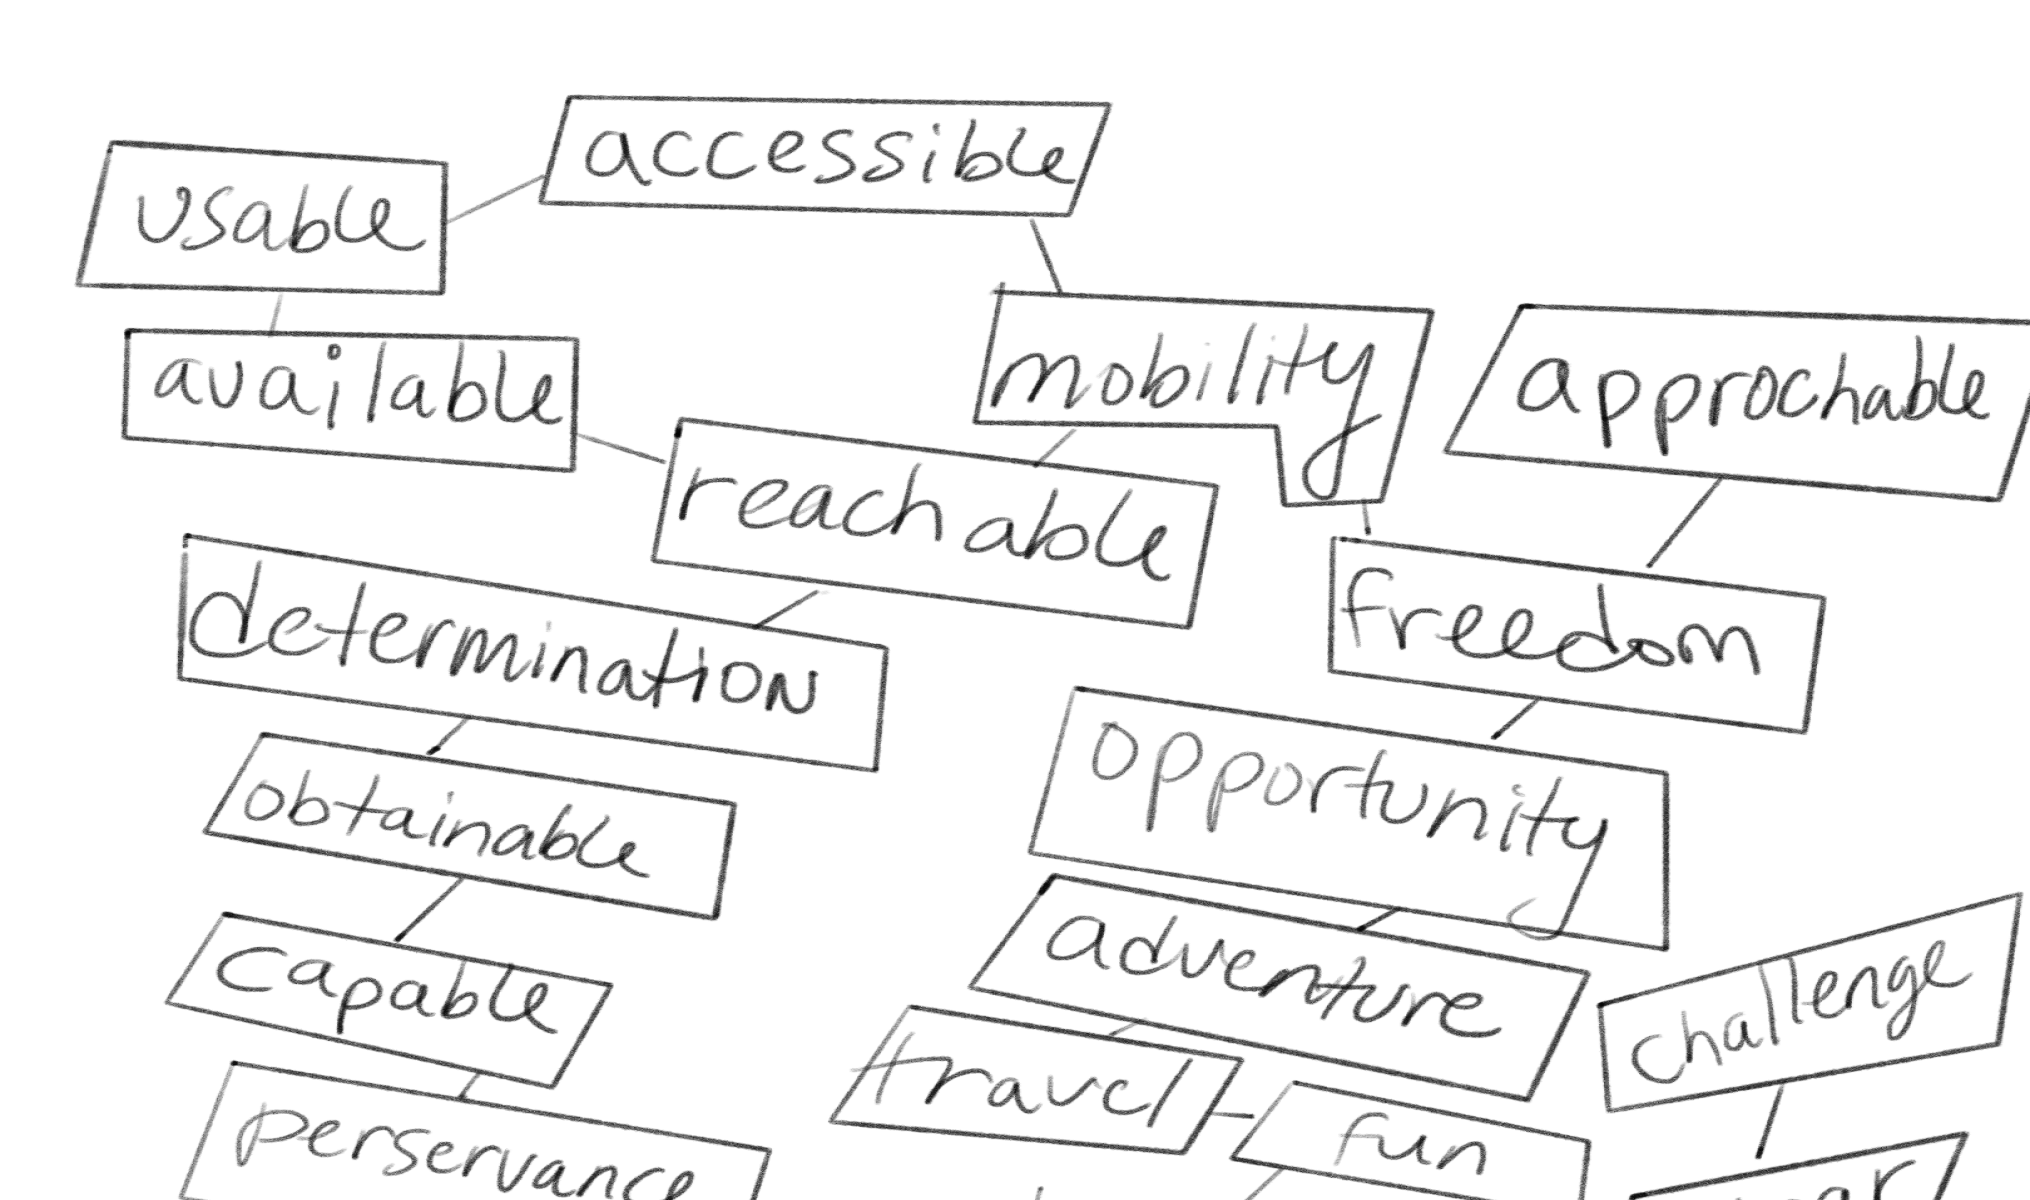 accessible
usable
available
mobility
approchable
reachable
determination
freedom
obtainable
opportunity
capable
adventure
challenge
travel
fun
perservance